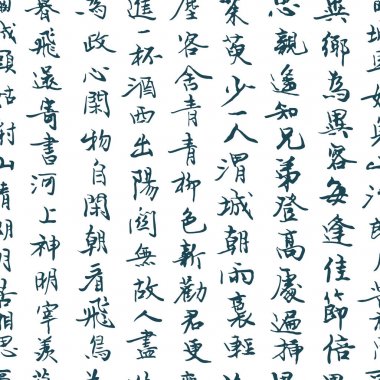 異鄉為異客每逢佳節倍
思親遙知兄弟登高處遍插
茱萸少一人渭城朝雨裛輕
塵客舍青青柳色新勸君更
進一杯酒西出陽關無故人盡
為政心閑物自閑朝看飛鳥
暮飛還寄書河上神明宰羨
城頭姑射山月苦相思